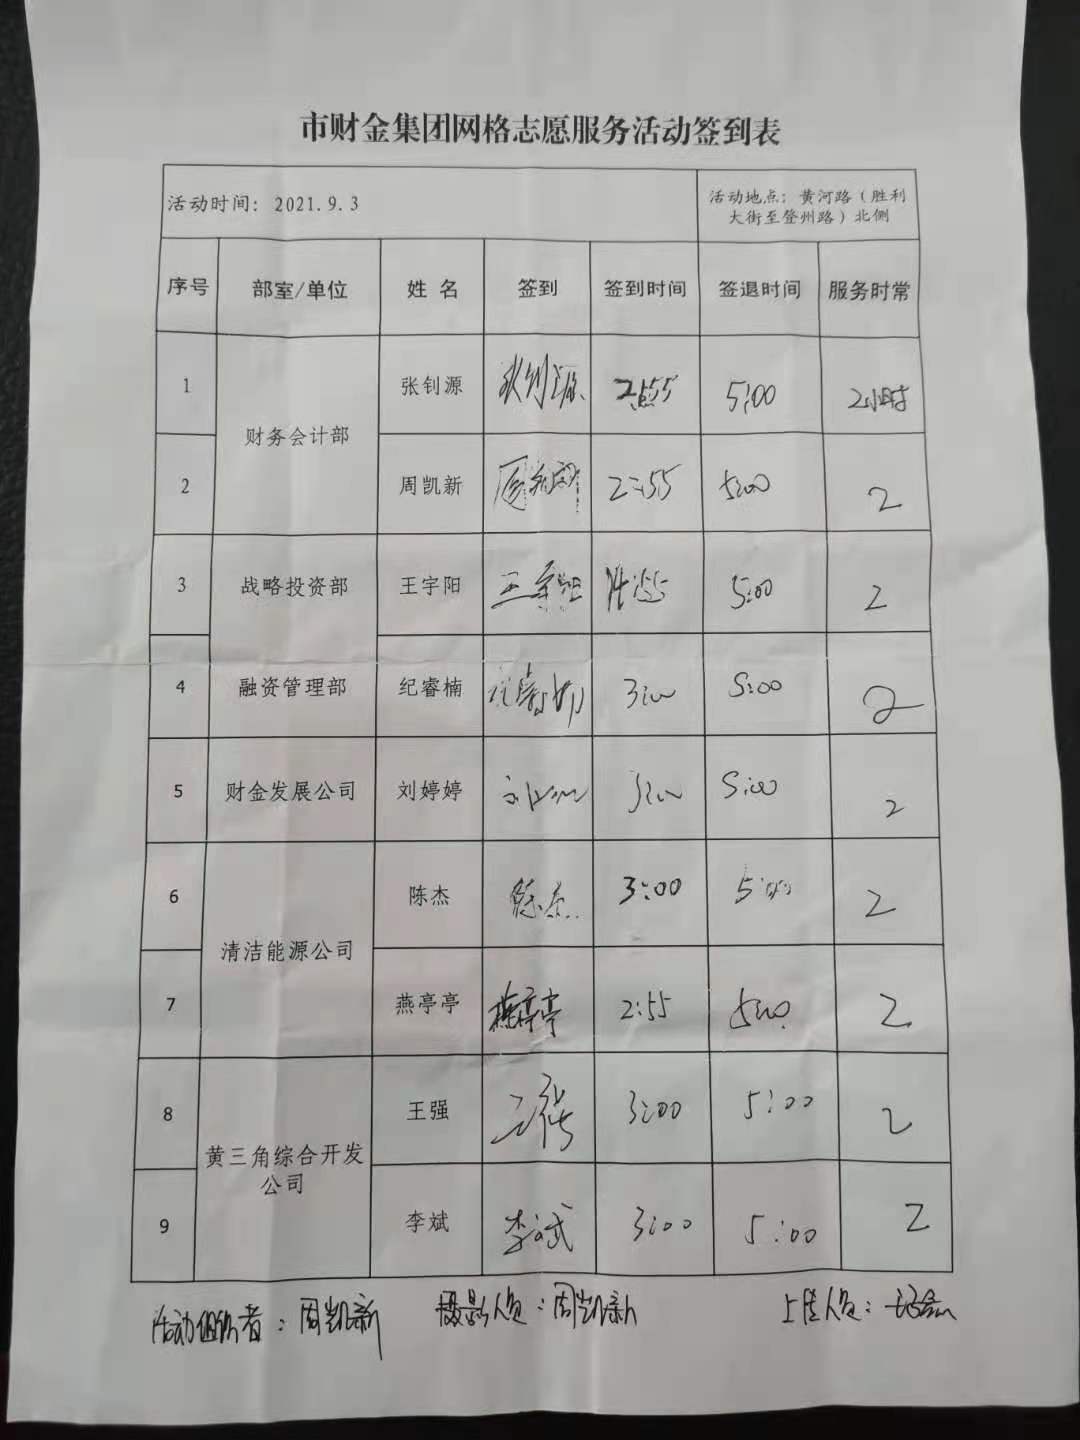 市财金集团网格志愿服务活动签到表
活动时间：2021.9.3
活动地点：黄河路（胜利
大街至登州路）北侧
序号 部室/单位 姓名 签到 签到时间 签退时间 服务时常
1 财务会计部 张钊源 张钊源 2:55 5:00 2小时
2 周凯新 周凯新 2:55 5:00 2
3 战略投资部 王宇阳 王宇阳 5:00 2
4 融资管理部 纪睿楠 纪睿楠 3:00 5:00 2
5 财金发展公司 刘婷婷 3:00 5:00 2
6 清洁能源公司 陈杰 陈杰 3:00 5:00 2
7 燕亭亭 燕亭亭 2:55 5:00 2
8 黄三角综合开发
公司 王强 王强 3:00 5:00 2
9 李斌 李斌 3:00 5:00 2
活动组织者：周凯新 摄影人员：周凯新 上传人员：